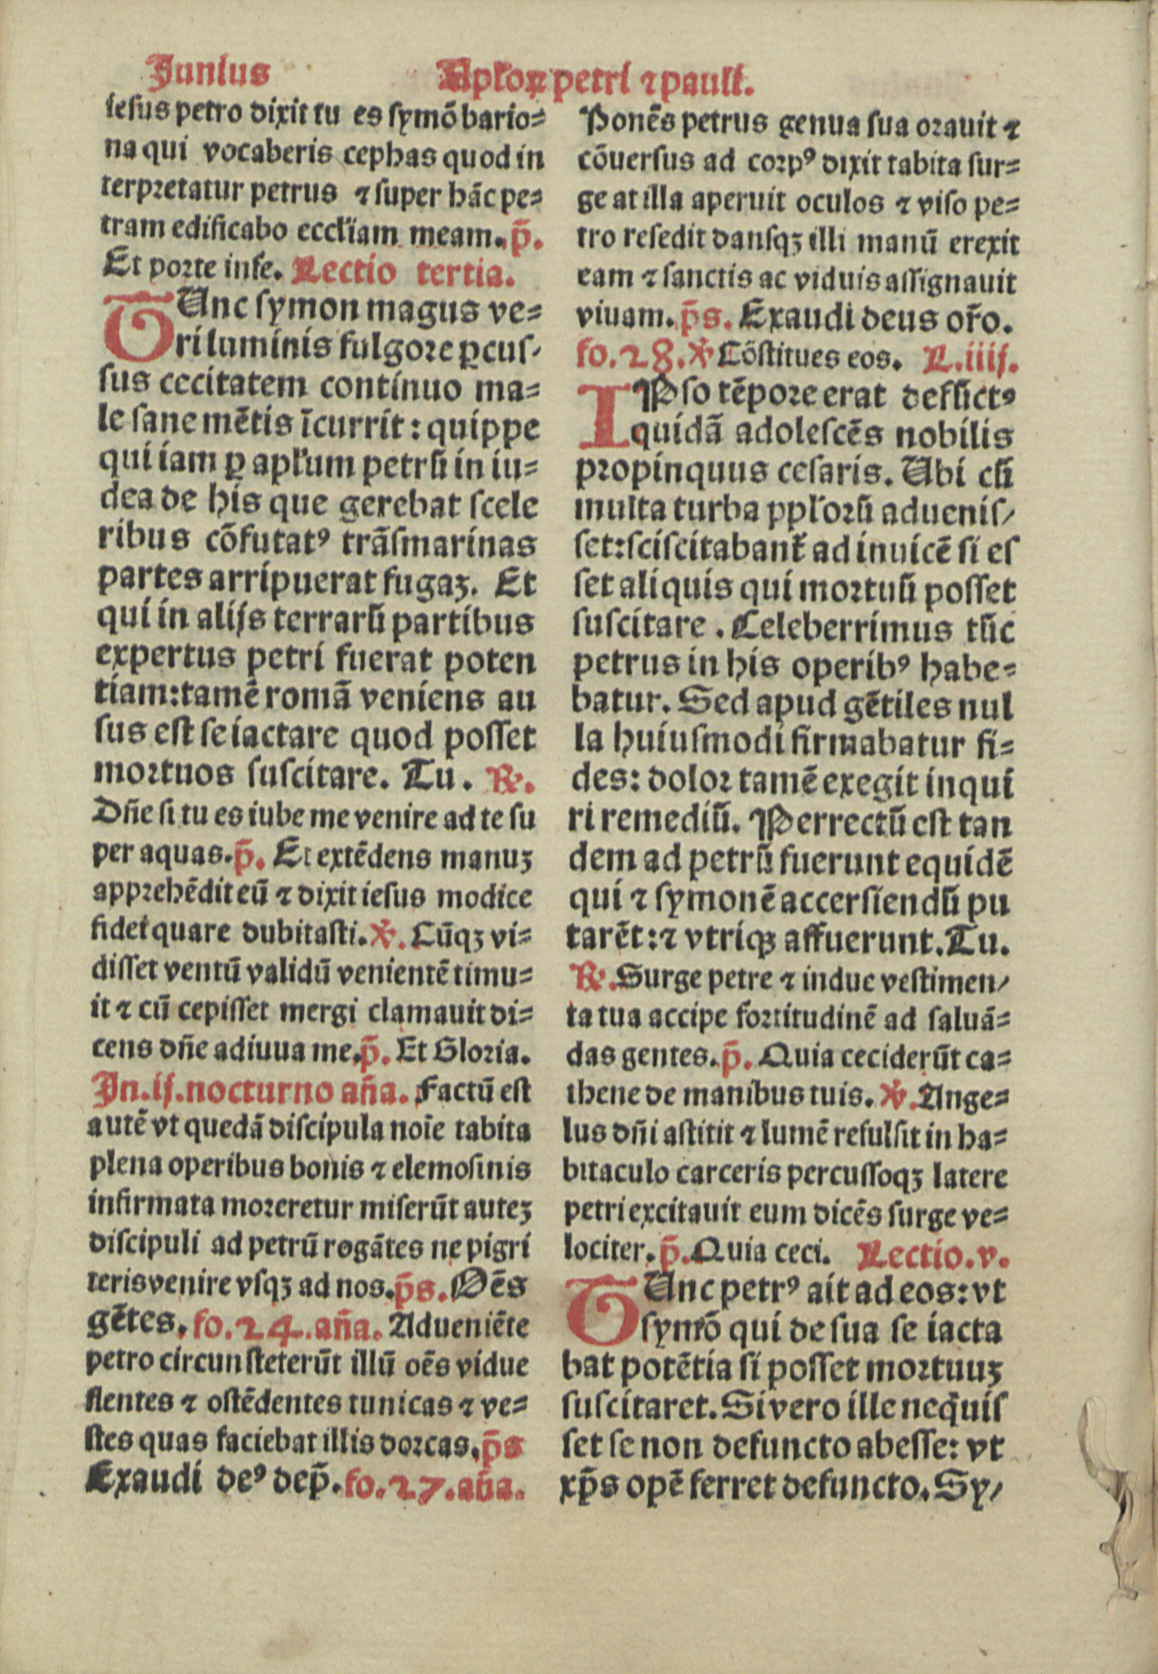 Junius
Apłoꝝ petri ⁊ pauli.
iesus petro dixit tu es symō bario-
na qui vocaberis cephas quod in
terpretatur petrus ⁊ super hāc pe-
tram edificabo eccłiam meam. p̄.
Et porte infe. Lectio tertia.
TUnc symon magus ve-
ri luminis fulgore ꝑcus/
sus cecitatem continuo ma-
le sane mētis īcurrit: quippe
qui iam ꝑ apłum petrū in iu-
dea de his que gerebat scele
ribus cōfutatꝰ trāsmarinas
partes arripuerat fugaꝫ. Et
qui in alijs terrarū partibus
expertus petri fuerat poten
tiam: tamē romā veniens au
sus est se iactare quod posset
mortuos suscitare. Tu. ℟.
Dn̄e si tu es iube me venire ad te su
per aquas. p̄. Et extēdens manuꝫ
apprehēdit eū ⁊ dixit iesus modice
fidei quare dubitasti. ℣. Cūqꝫ vi-
disset ventū validū venientē timu-
it ⁊ cū cepisset mergi clamauit di-
cens dn̄e adiuua me. p̄. Et Gloria.
In .ij. nocturno an̄a. Factū est
autē vt quedā discipula noīe tabita
plena operibus bonis ⁊ elemosinis
infirmata moreretur miserūt auteꝫ
discipuli ad petrū rogātes ne pigri
teris venire vsqꝫ ad nos. p̄s. Oēs
gētes. fo. 24. an̄a. Adueniēte
petro circunsteterūt illū oēs vidue
flentes ⁊ ostēdentes tunicas ⁊ ve-
stes quas faciebat illis dorcas. p̄s
Exaudi deꝰ dep̄. fo. 27. an̄a.
Ponēs petrus genua sua orauit ⁊
cōuersus ad corpꝰ dixit tabita sur-
ge at illa aperuit oculos ⁊ viso pe-
tro resedit dansqꝫ illi manū erexit
eam ⁊ sanctis ac viduis assignauit
viuam. p̄s. Exaudi deus or̄o.
fo. 28. ℣ Cōstitues eos. L. iiij.
IPso tēpore erat defūctꝰ
quidā adolescēs nobilis
propinquus cesaris. Ubi cū
multa turba ppłorū aduenis/
set: sciscitabant̄ ad inuicē si es
set aliquis qui mortuū posset
suscitare. Celeberrimus tūc
petrus in his operibꝰ habe-
batur. Sed apud gētiles nul
la huiusmodi firmabatur fi-
des: dolor tamē exegit inqui
ri remediū. Perrectū est tan
dem ad petrū fuerunt equidē
qui ⁊ symonē accersiendū pu
tarēt: ⁊ vtriqꝫ affuerunt. Tu.
℟. Surge petre ⁊ indue vestimen/
ta tua accipe fortitudinē ad saluā-
das gentes. p̄. Quia ceciderūt ca-
thene de manibus tuis. ℣. Ange-
lus dn̄i astitit ⁊ lumē refulsit in ha-
bitaculo carceris percussoqꝫ latere
petri excitauit eum dicēs surge ve-
lociter. p̄. Quia ceci. Lectio. v.
TUnc petrꝰ ait ad eos: vt
symō qui de sua se iacta
bat potētia si posset mortuuꝫ
suscitaret. Si vero ille neq̇uis
set se non defuncto abesse: vt
xp̄s opē ferret defuncto. Sy/